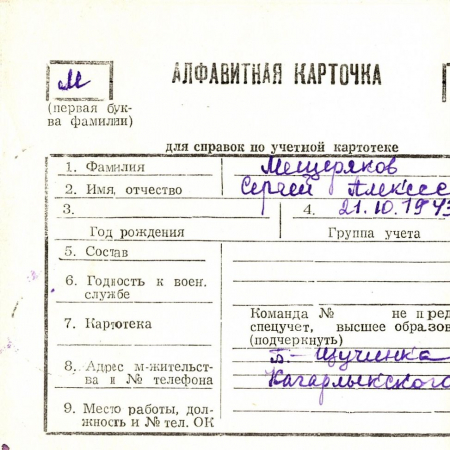 М
АЛФАВИТНАЯ КАРТОЧКА
(первая бук-
ва фамилии)
для справок по учетной картотеке
1. Фамилия Мещеряков
2. Имя, отчество Сергей Алексее
3. 4. 21.10.1943
Год рождения Группа учета
5. Состав
6. Годность к воен.
службе
7. Картотека
Команда № не пред
спецучет, высшее образов
(подчеркнуть)
8. Адрес м-жительст-
ва и № телефона
Б-Щучинка
Кагарлыкского
9. Место работы, дол-
жность и № тел. ОК